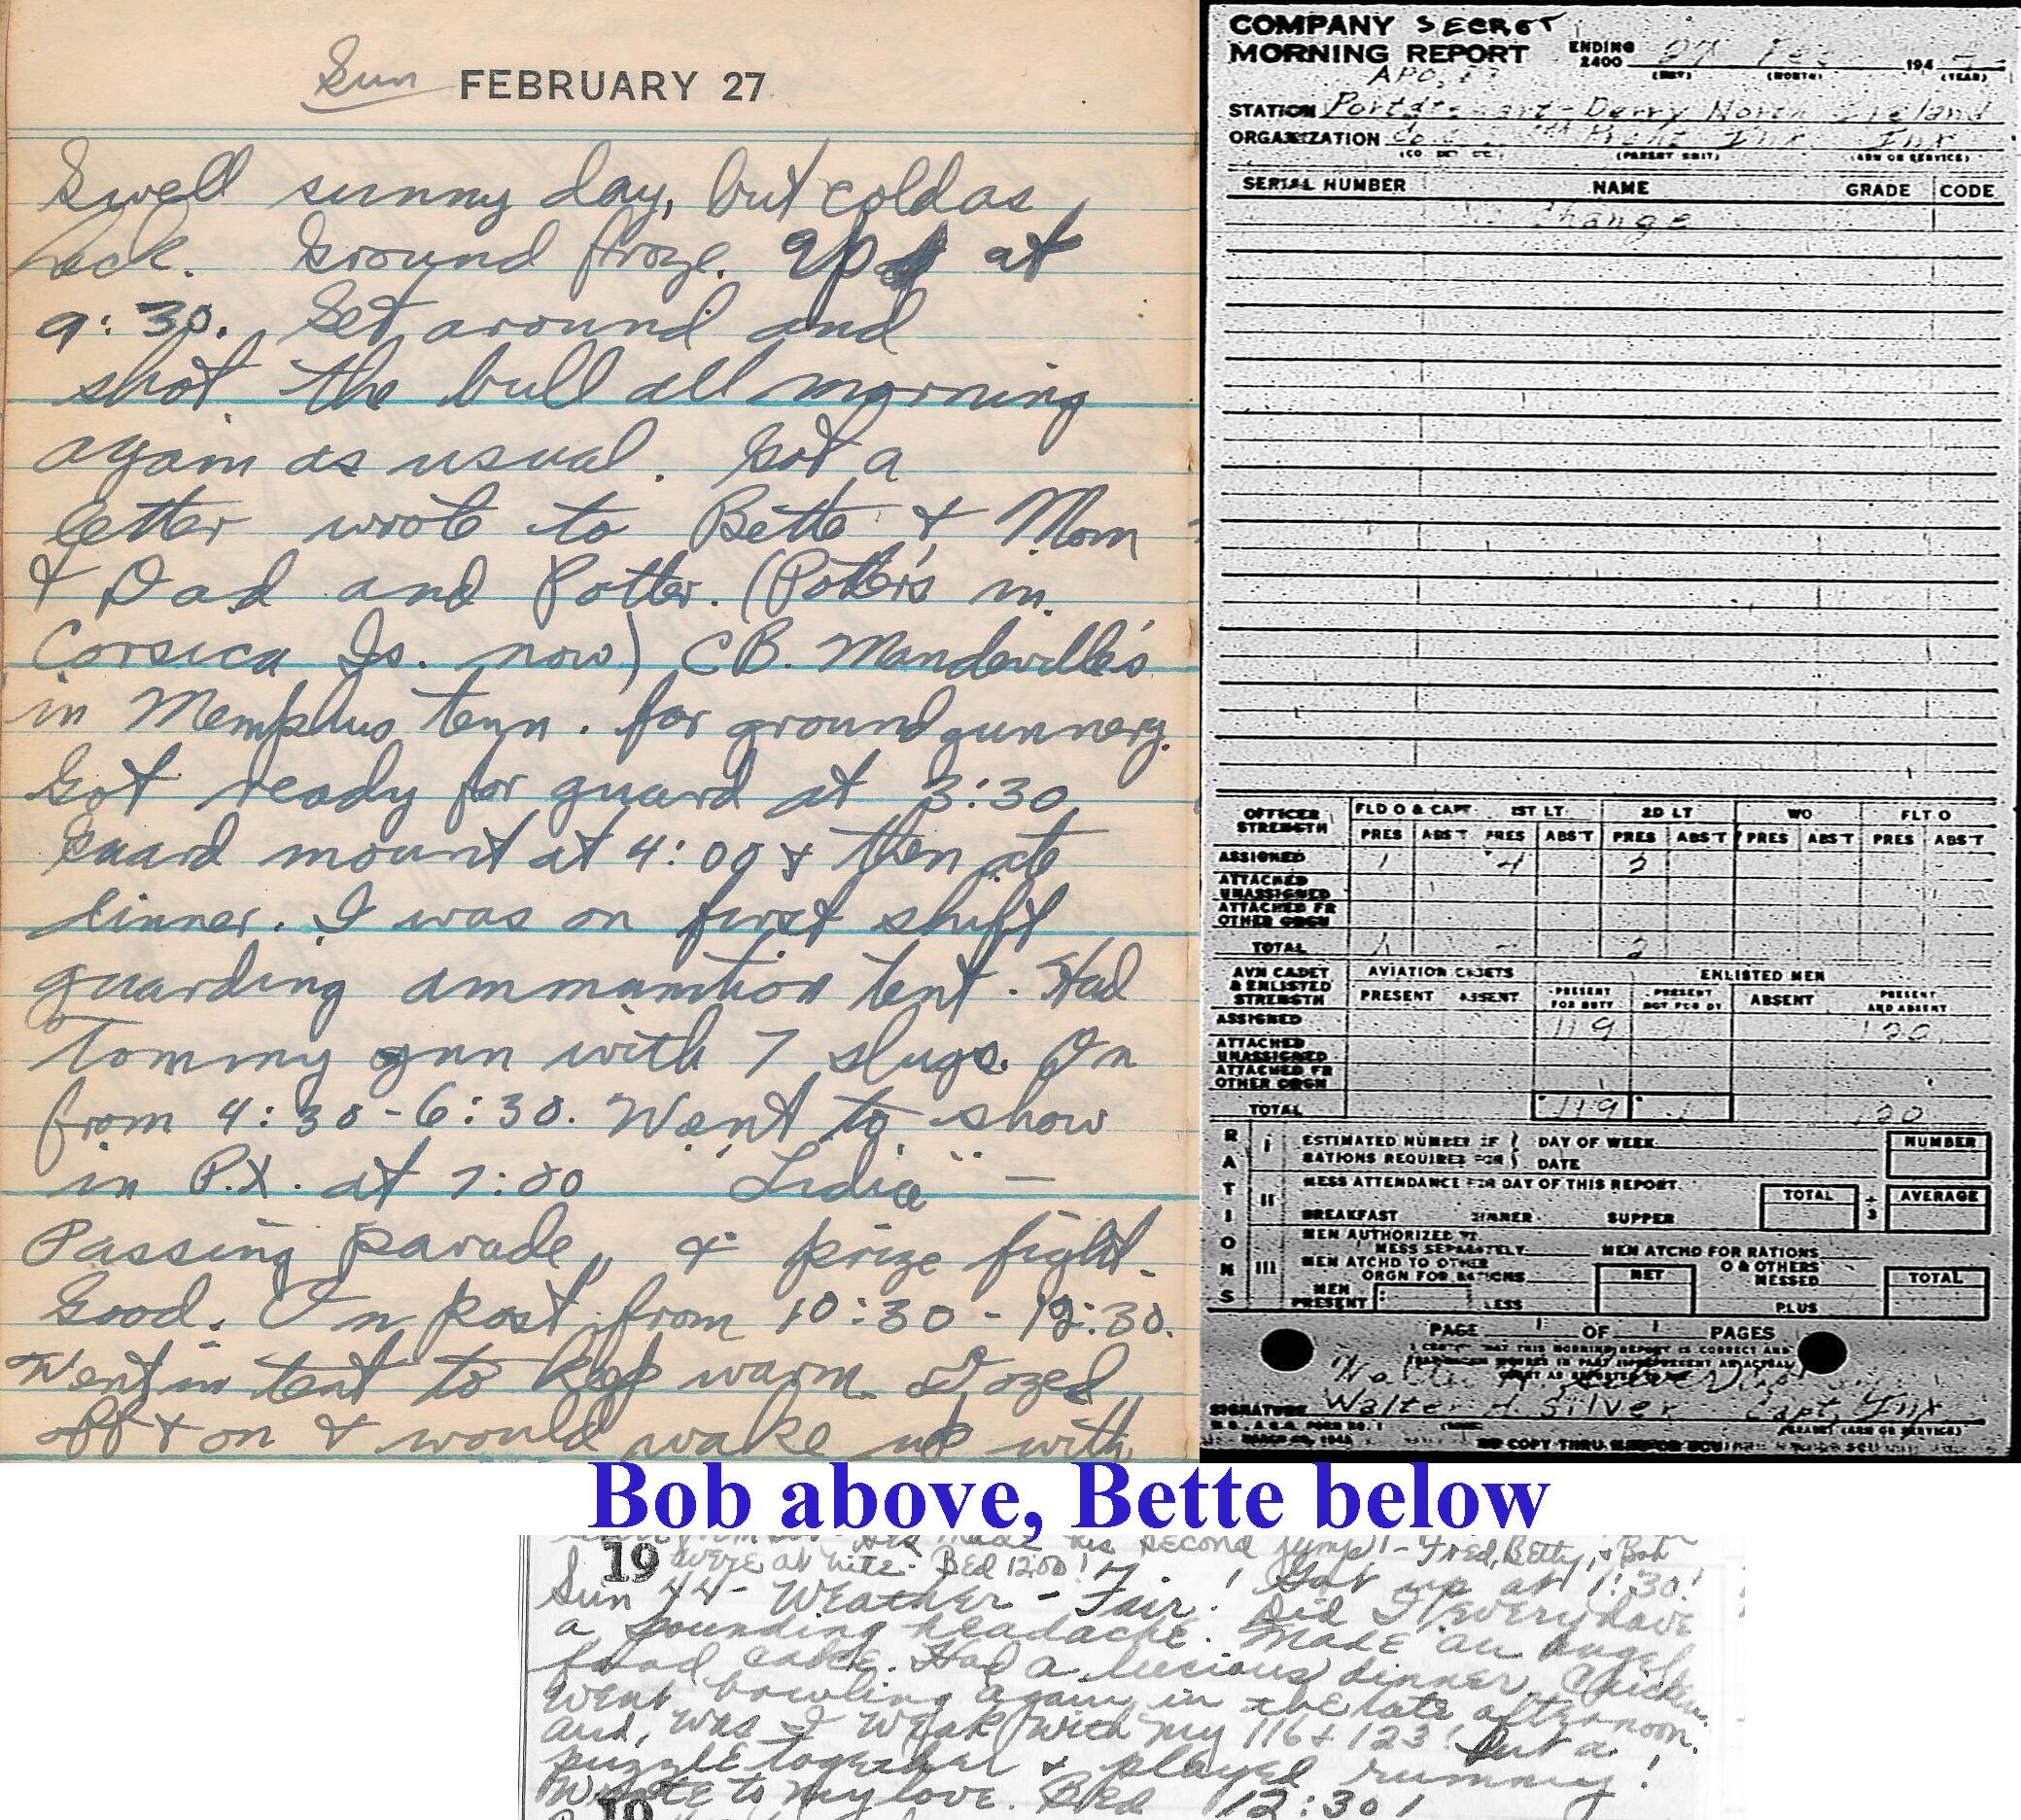 Sun FEBRUARY 27
Swell sunny day, but cold as
heck. Ground froze. Up at
9:30. Set around and
shot the bull all morning
again as usual. Got a
letter wrote to Bette & Mom
& Dad and Potter. (Potter's in
Corsica Is. now) CB. Mandeville's
in Memphis Tenn. for ground gunnery.
Got ready for guard at 3:30
Guard mount at 4:00 & then ate
dinner. I was on first shift
guarding ammunition tent. Had
Tommy gun with 7 slugs. On
from 4:30-6:30. Went to show
in P.X. at 7:00 "Lidice" —
Passing parade, & prize fight.
Good. On post from 10:30 - 12:30.
Went in tent to keep warm. Dozed
off & on & would wake up with
COMPANY SECRET
MORNING REPORT ENDING 2400 27 Feb 194
(DAY) (MONTH) (YEAR)
STATION Portstewart - Derry North Ireland
ORGANIZATION Inf
(PARENT UNIT) (ARM OR SERVICE)
SERIAL NUMBER NAME GRADE CODE
Change
OFFICER STRENGTH FLD O & CAPT 1ST LT 2D LT WO FLT O
PRES ABS'T PRES ABS'T PRES ABS'T PRES ABS'T PRES ABS'T
ASSIGNED 1 4 2
ATTACHED UNASSIGNED
ATTACHED FR OTHER ORGN
TOTAL 1 2
AVN CADET & ENLISTED STRENGTH AVIATION CADETS ENLISTED MEN
PRESENT ABSENT PRESENT FOR DUTY PRESENT NOT FOR DY ABSENT PRESENT AND ABSENT
ASSIGNED 119 120
ATTACHED UNASSIGNED
ATTACHED FR OTHER ORGN
TOTAL 119 1 120
RATIONS
I ESTIMATED NUMBER OF RATIONS REQUIRED FOR DAY OF WEEK DATE NUMBER
II MESS ATTENDANCE FOR DAY OF THIS REPORT. TOTAL ÷ 3 AVERAGE
BREAKFAST DINNER SUPPER
III MEN AUTHORIZED TO MESS SEPARATELY MEN ATCHD FOR RATIONS
MEN ATCHD TO OTHER ORGN FOR RATIONS NET O & OTHERS MESSED TOTAL
MEN PRESENT LESS PLUS
PAGE 1 OF 1 PAGES
I CERTIFY THAT THIS MORNING REPORT IS CORRECT AND
SIGNATURE Walter H. Silver Capt, Inf
Bob above, Bette below
made his second jump! - Fred, Betty, & Bob
19 were at nite. Bed 12:00!
Sun 44 - Weather - Fair. Got up at 1:30!
Did I ever have
a pounding headache. Made an angel
food cake. Had a lucious dinner. Chicken.
Went bowling again in the late afternoon.
and, was I weak with my 116 & 123! Put a
puzzle together & played rummy!
Wrote to my love. Bed 12:30!
19